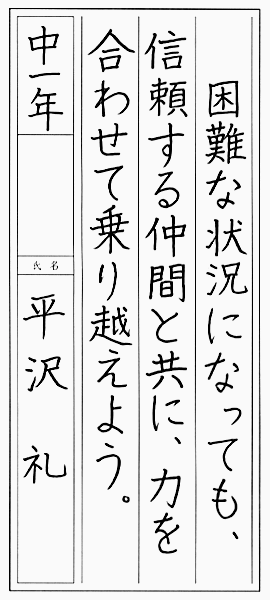 困難な状況になっても、
信頼する仲間と共に、力を
合わせて乗り越えよう。
中一年
氏名
平沢 礼